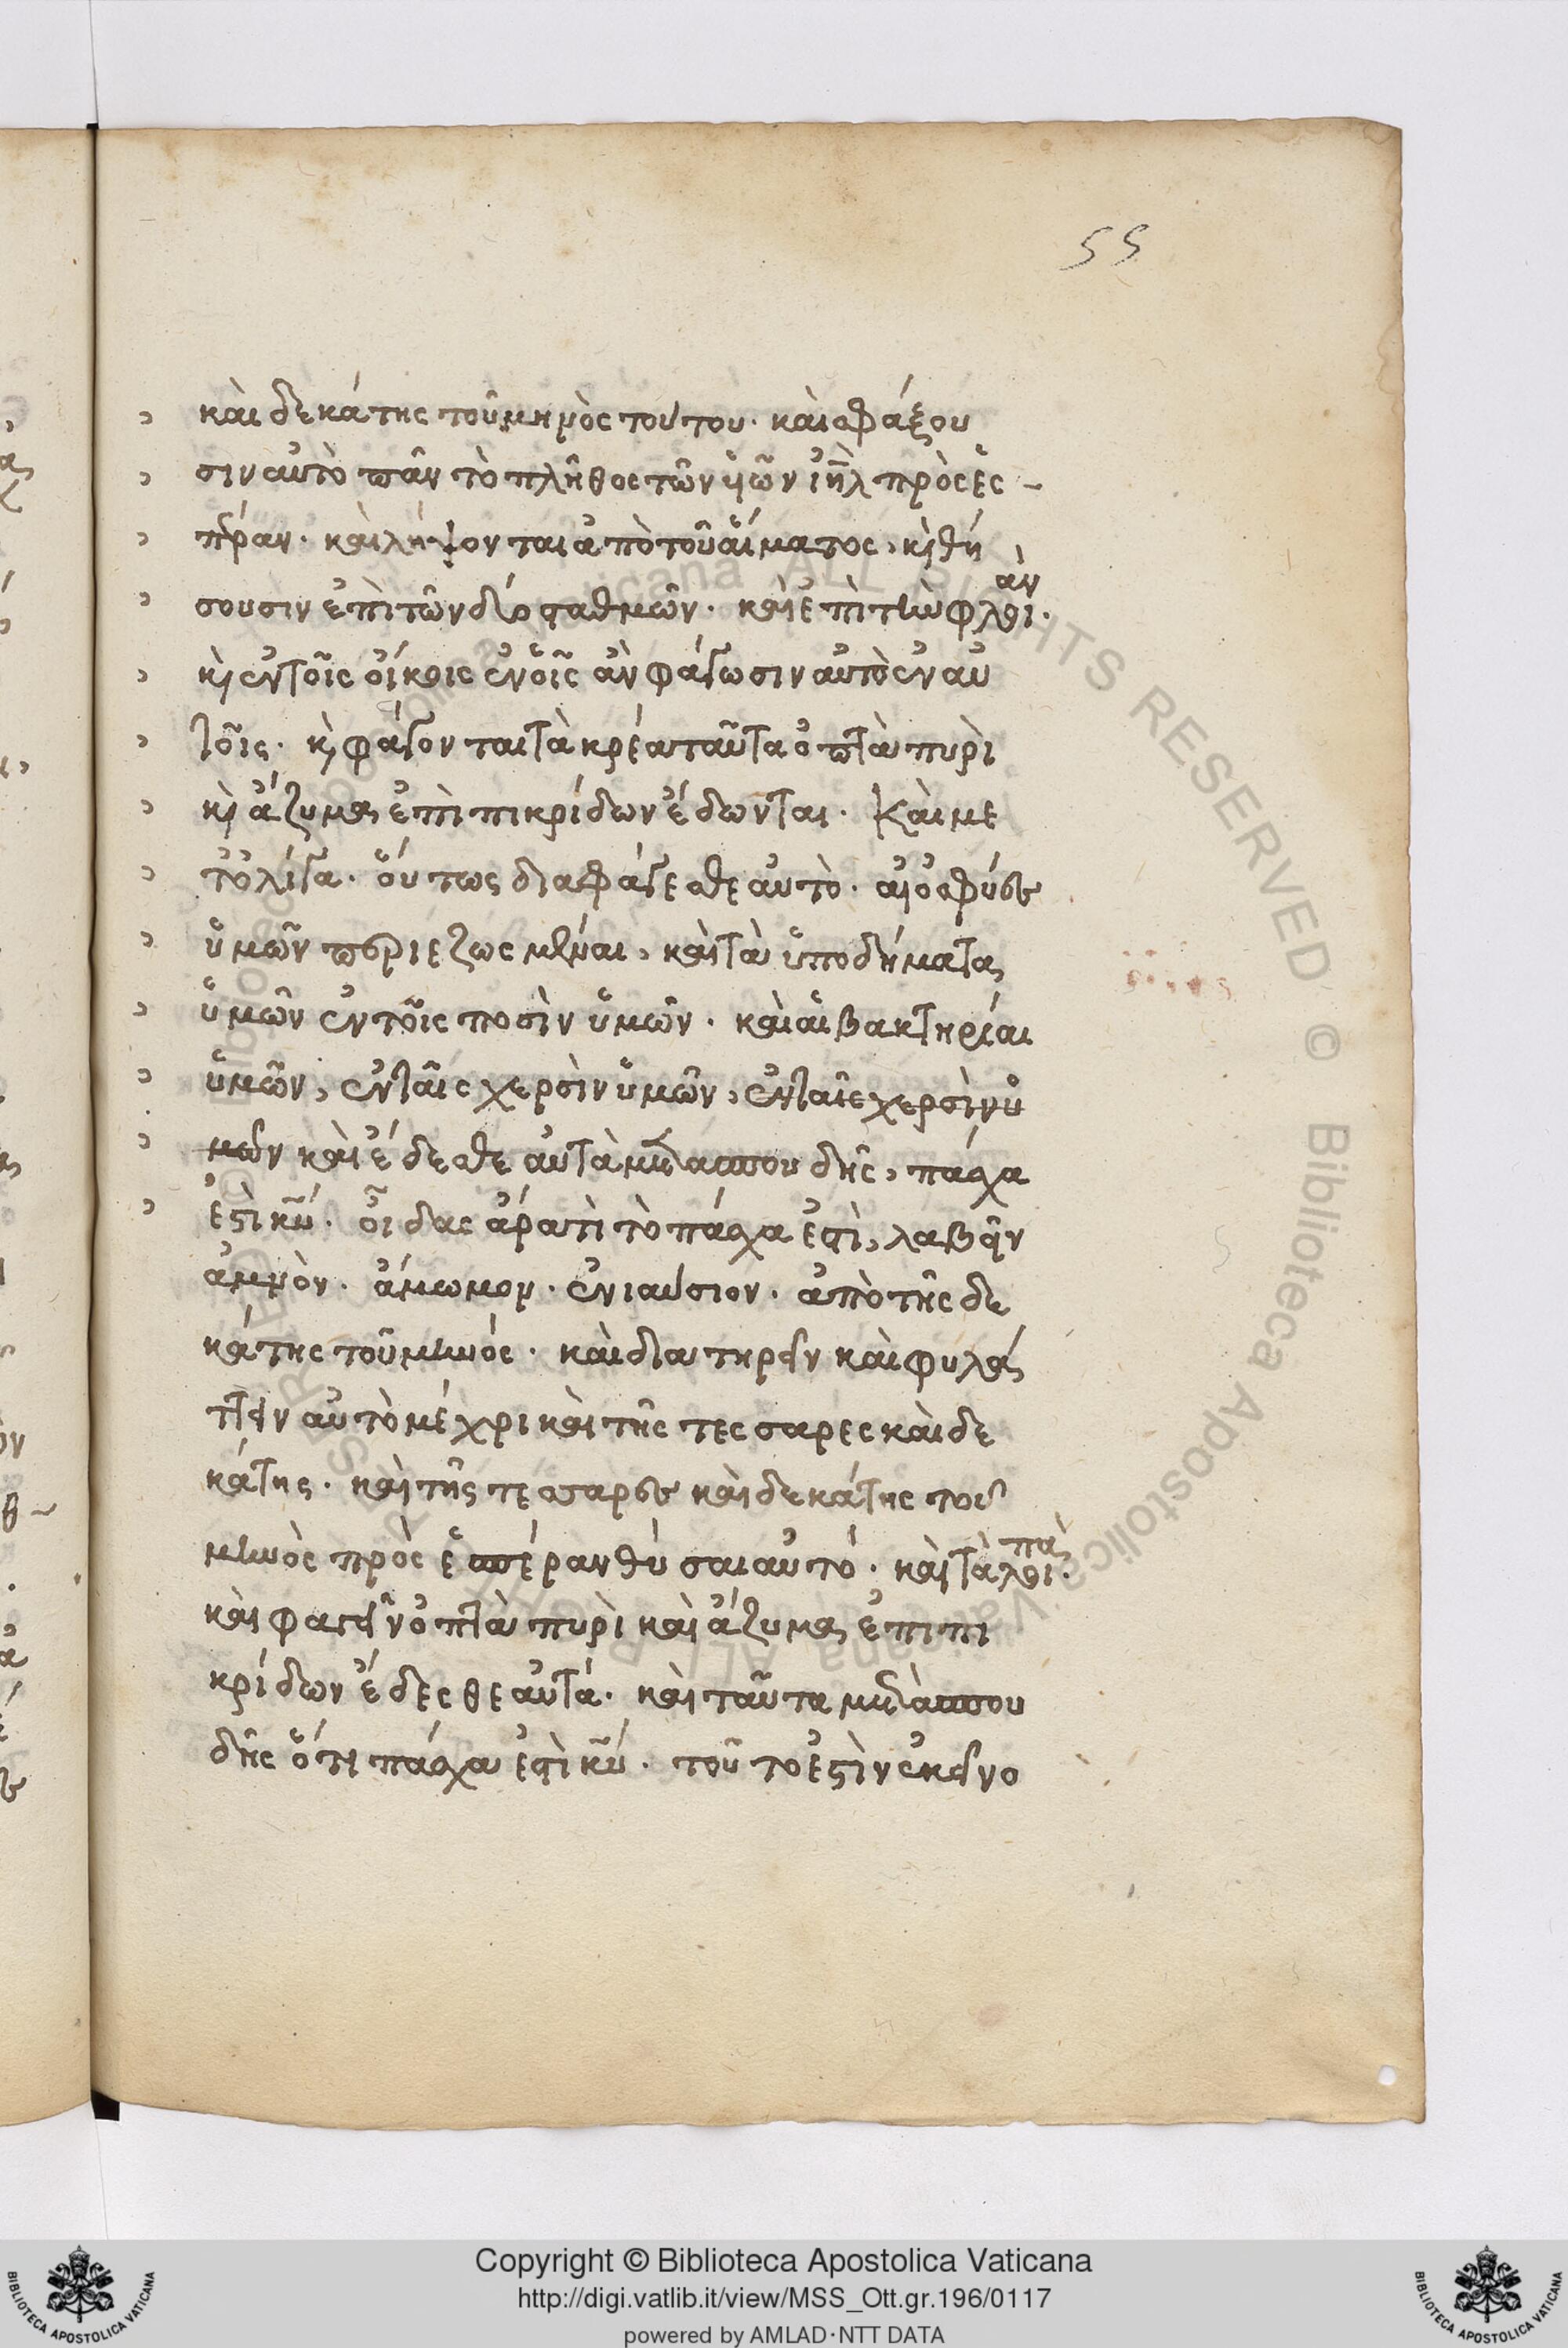 55
καὶ δεκάτης τοῦ μηνὸς τούτου· καὶ σφάξου
σιν αὐτὸ πᾶν τὸ πλῆθος τῶν υἱῶν ἰη̅λ πρὸς ἑς –
πέραν· καὶ λήψονται ἀπὸ τοῦ αἵματος, κ̀ θή
σουσιν ἐπὶ τῶν δύο σταθμῶν· καὶ ἐπὶ τὴν φλοι·
ὰν
κ̀ ἐν τοῖς οἴκοις ἐν οἷς ἂν φάγωσιν αὐτὸ ἐν αὐ
τοῖς· κ̀ φάγονται τὰ κρέα ταῦτα ὀπτὰ πυρὶ
κ̀ ἄζυμα ἐπὶ πικρίδων ἔδωνται· Καὶ με
τ᾽ ὀλίγα· οὕτως δὲ φάγεσθε αὐτὸ· αἱ ὀσφύες
ὑμῶν περιεζωσμέναι, καὶ τὰ ὑποδήματα
ὑμῶν ἐν τοῖς ποσὶν ὑμῶν· καὶ αἱ βακτηρίαι
ὑμῶν, ἐν ταῖς χερσὶν ὑμῶν, ἐν ταῖς χερσὶν ὑ
μῶν καὶ ἔδεσθε αὐτὰ μετὰ σπουδῆς, πάσχα
ἐστὶ κῡ· οἶδας ἄρα τί τὸ πάσχα ἐστὶ, λαβεῖν
ἀμνὸν· ἄμωμον· ἐνιαύσιον· ἀπὸ τῆς δε
κάτης τοῦ μηνός· καὶ διατηρεῖν καὶ φυλάτ
τειν αὐτὸ μέχρι καὶ τῆς τεσσαρες καὶ δε
κάτης· καὶ τῆς τεσσαρες καὶ δεκάτης τοῦ
μηνὸς πρὸς ἑσπέραν θύσαι αὐτό· καὶ τὰ λοι·
πὰ
καὶ φαγεῖν ὀπτὰ πυρὶ καὶ ἄζυμα ἐπὶ πι
κρίδων ἔδεσθε αὐτά· καὶ ταῦτα μετὰ σπου
δῆς ὅτι πάσχα ἐστὶ κῡ· τοῦτο ἐστὶν ἐκεῖνο
Copyright © Biblioteca Apostolica Vaticana
http://digi.vatlib.it/view/MSS_Ott.gr.196/0117
powered by AMLAD·NTT DATA